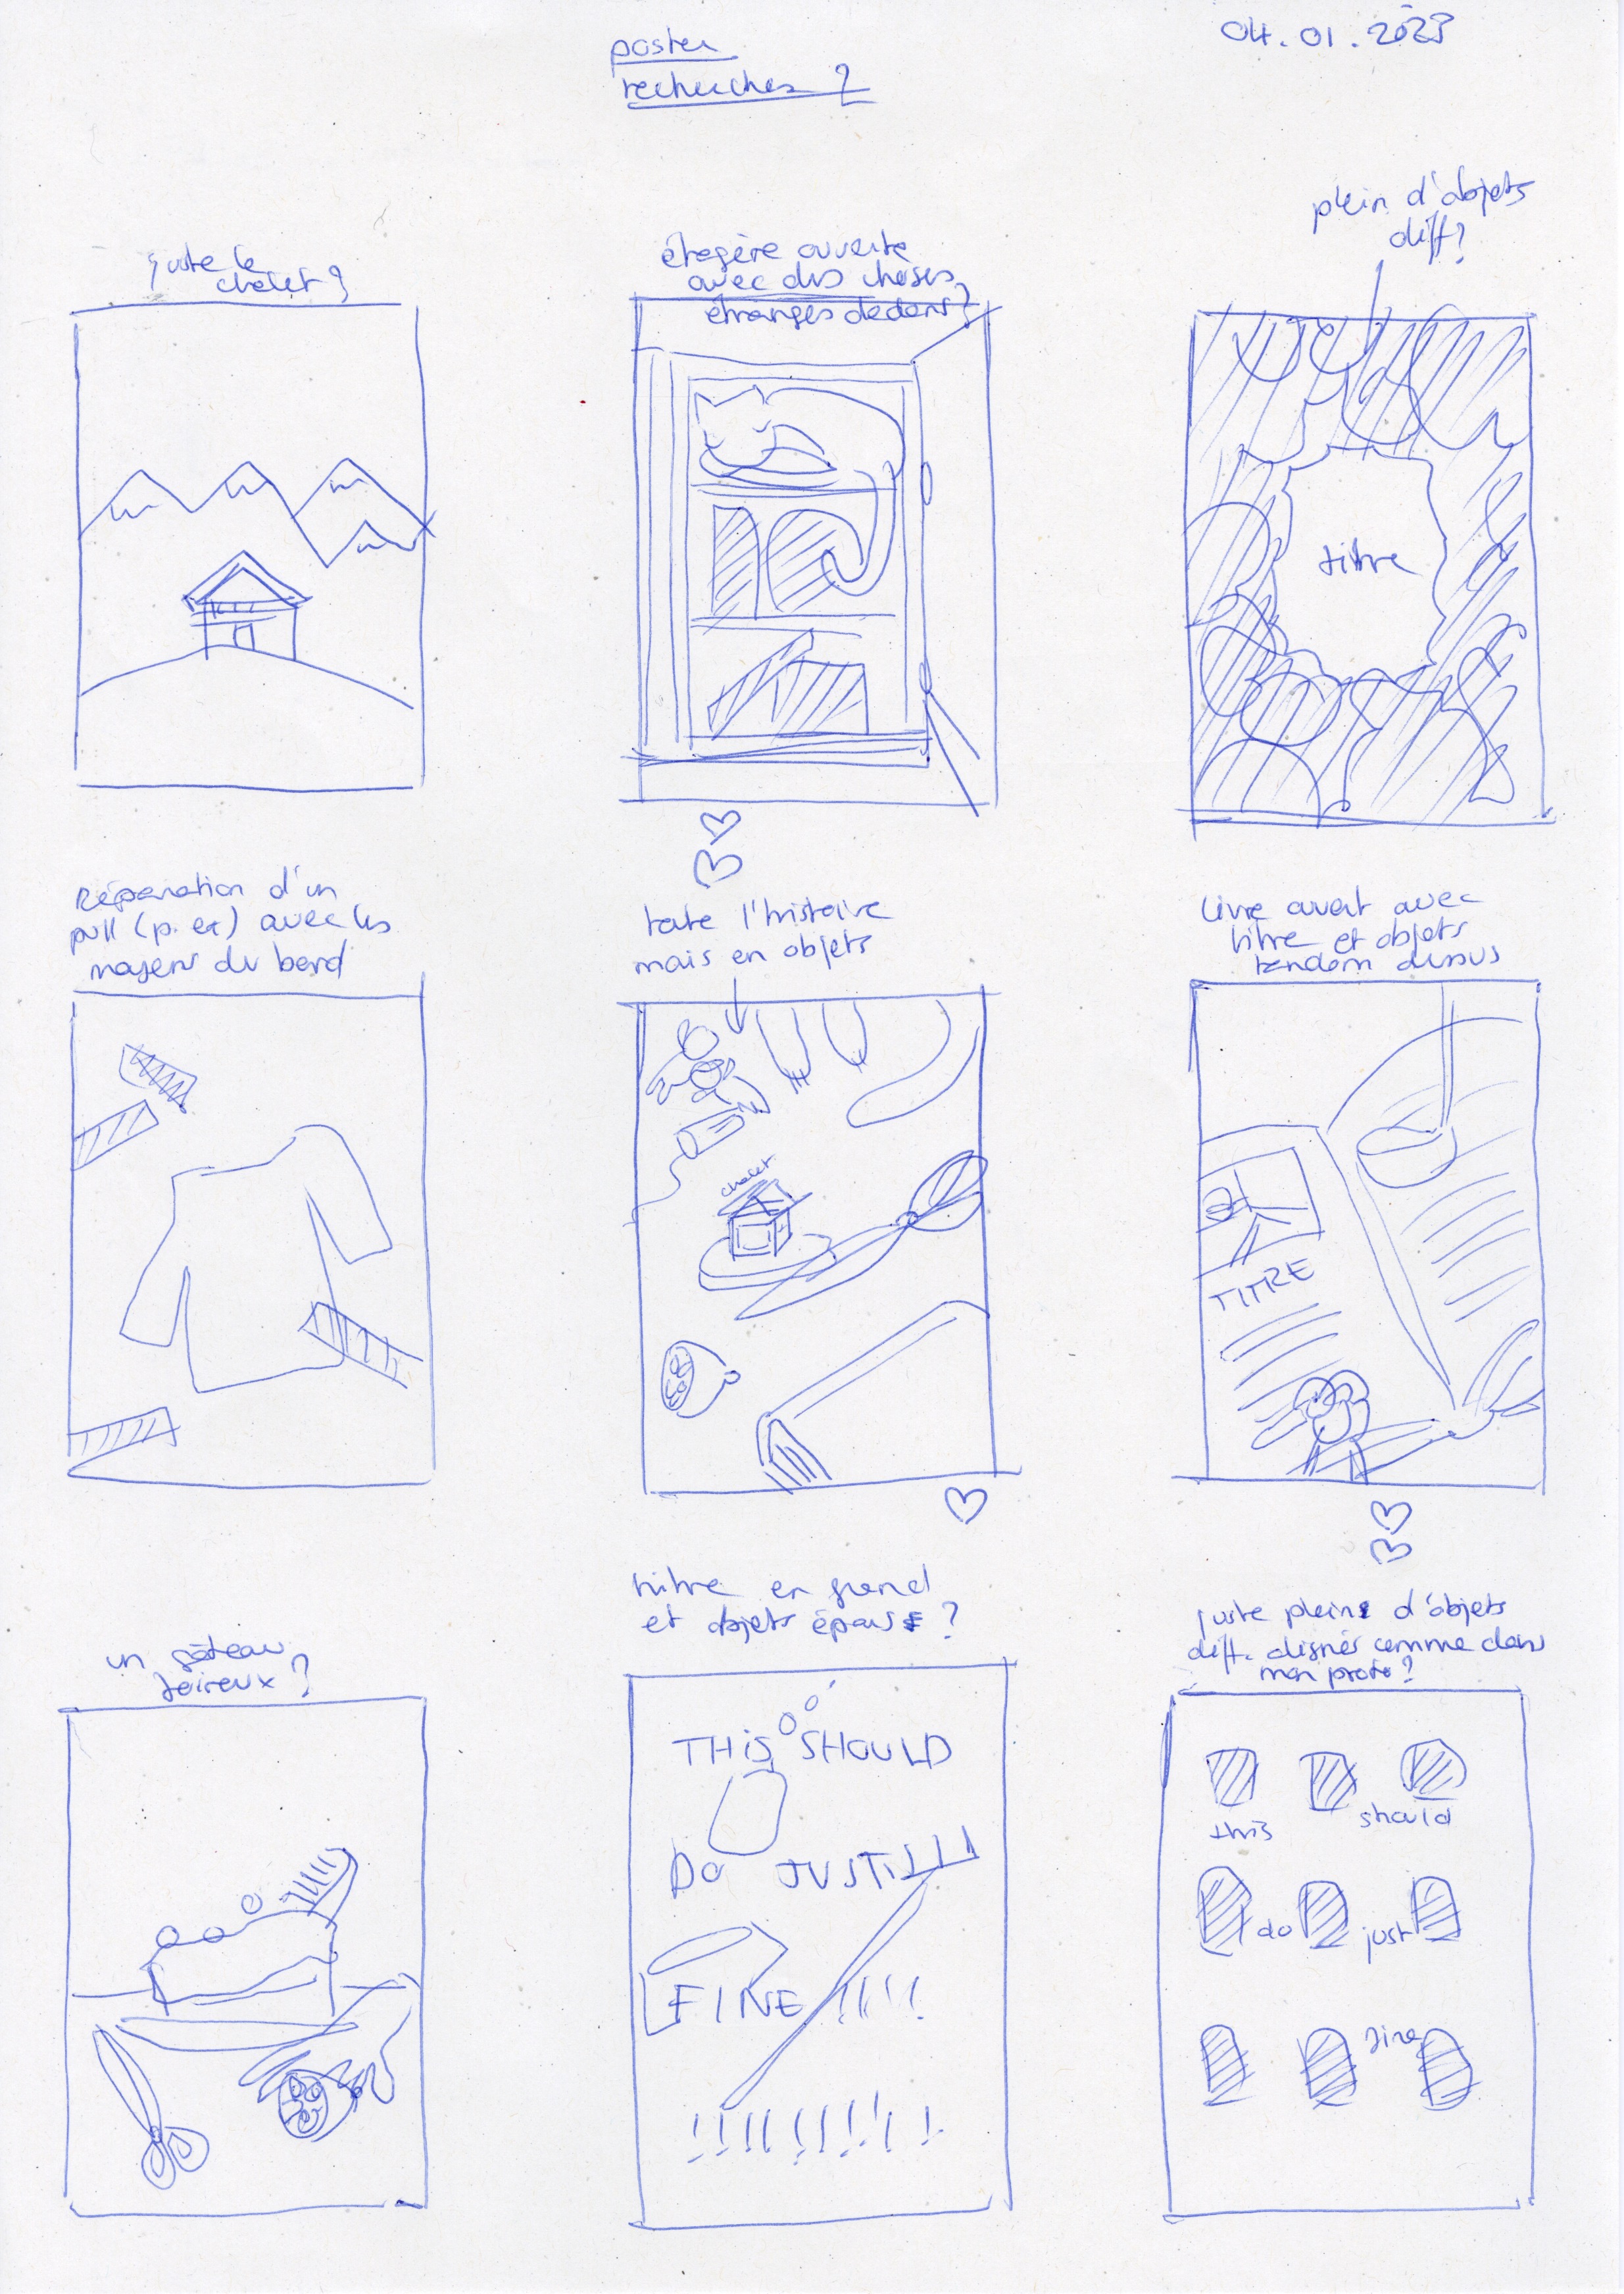 poster
recherches ?
04.01.2023
juste le
chalet ?
étagère ouverte
avec des choses
étranges dedans ?
plein d'objets
diff ?
titre
Réparation d'un
pull (p. ex) avec les
moyens du bord
toute l'histoire
mais en objets
chalet
livre ouvert avec
titre et objets
random dessus
TITRE
un gâteau
foireux ?
titre en grand
et objets épars ?
THiS SHOULD
DO JUST
FINE !!!!
!!!!!!!!!
juste pleins d'objets
diff. alignés comme dans
mon proto ?
this should
do just
fine